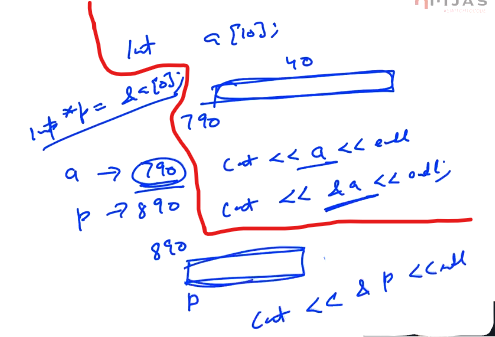 MIJAS
Int a [10];
40
Int *p = &a[0];
790
a → 790
cout << a << endl
p → 890
cout << &a << endl;
890
p
cout << & p << endl